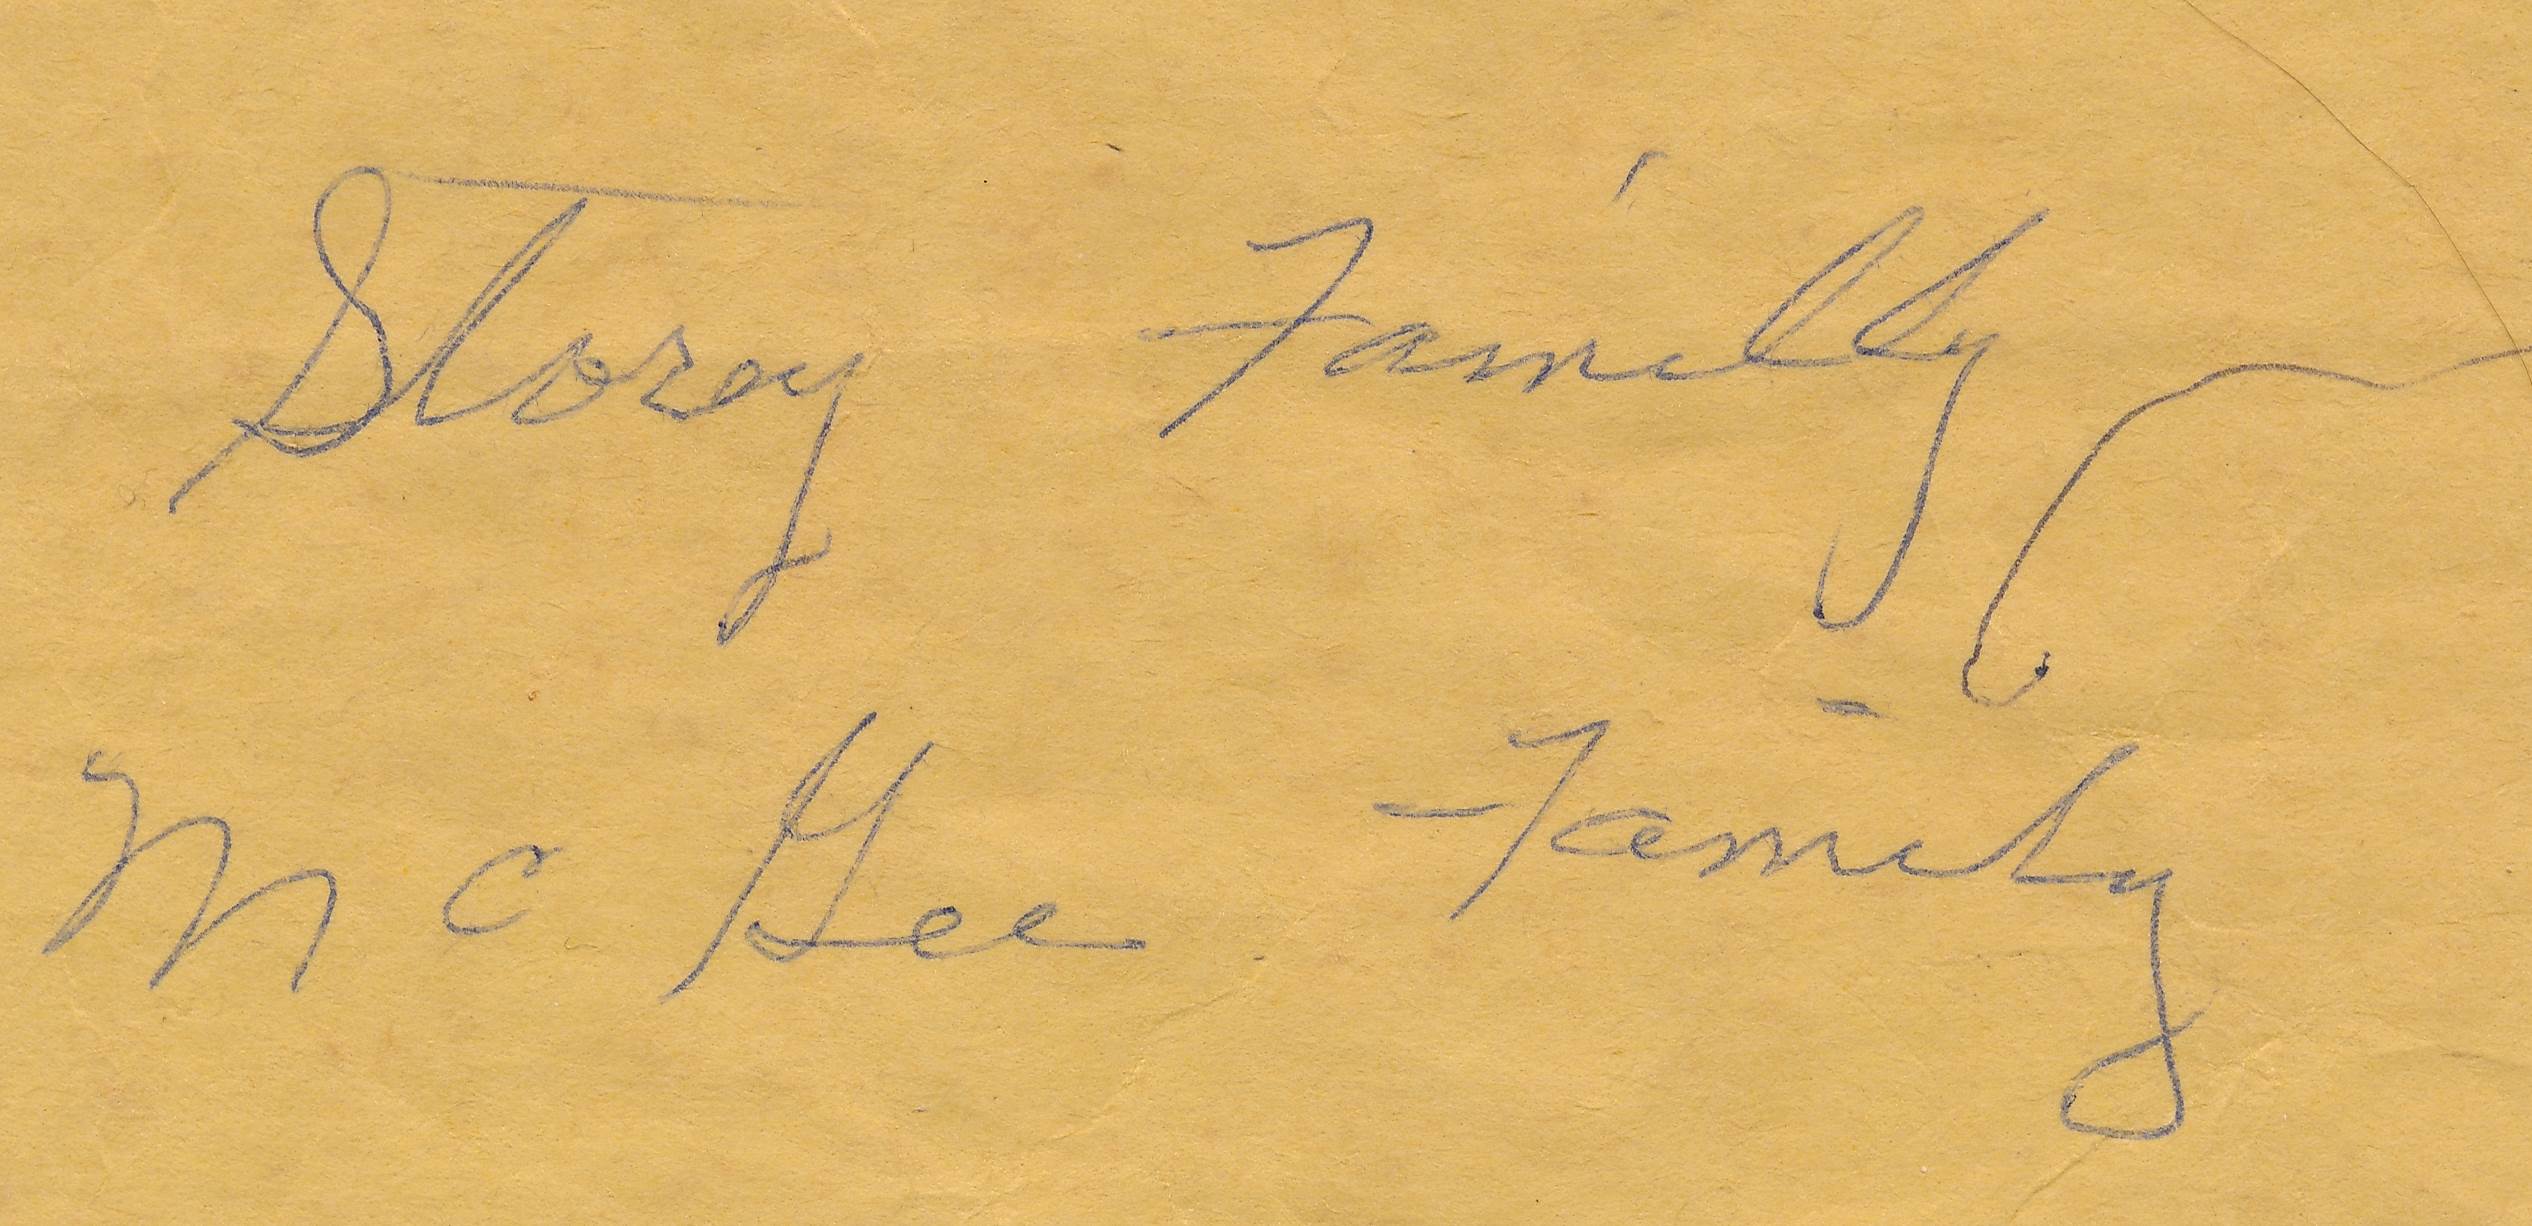 Storey Familly
Mc Gee Family